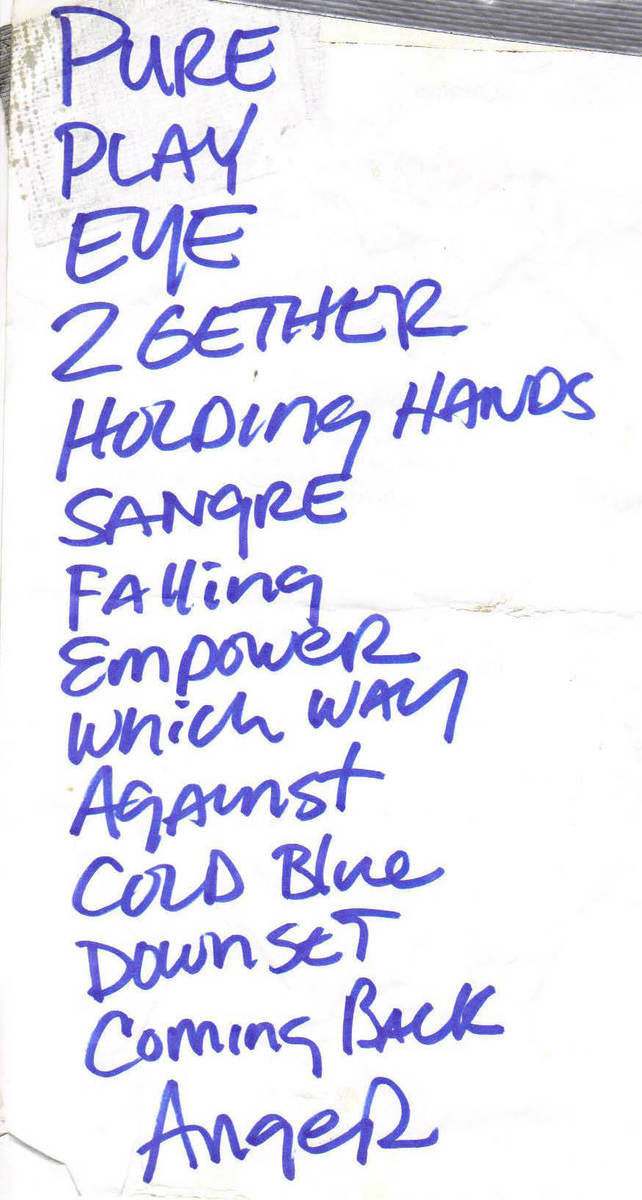 PURE
PLAY
EYE
2 GETHER
HOLDing HANDS
SANgRE
FAlling
EmpoweR
which WAy
AgAinst
COLD Blue
DownSET
Coming BACK
AngeR